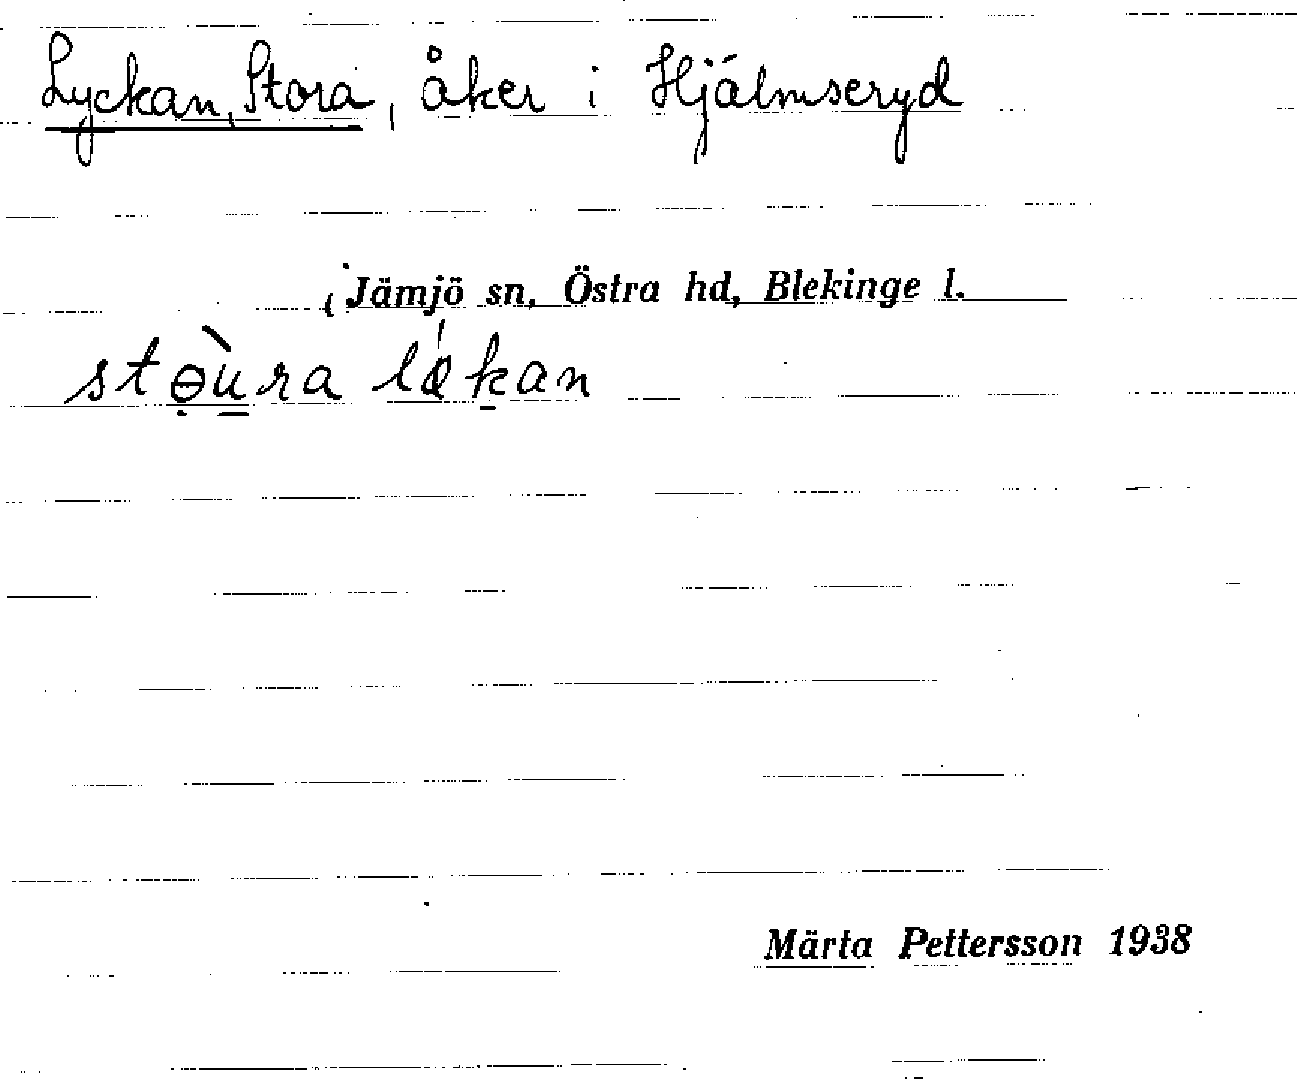 Lyckan, Stora, åker i Hjälmseryd
Jämjö sn, Östra hd, Blekinge l.
stɵ̣̀u̳ra lǽḵan
Märta Pettersson 1938